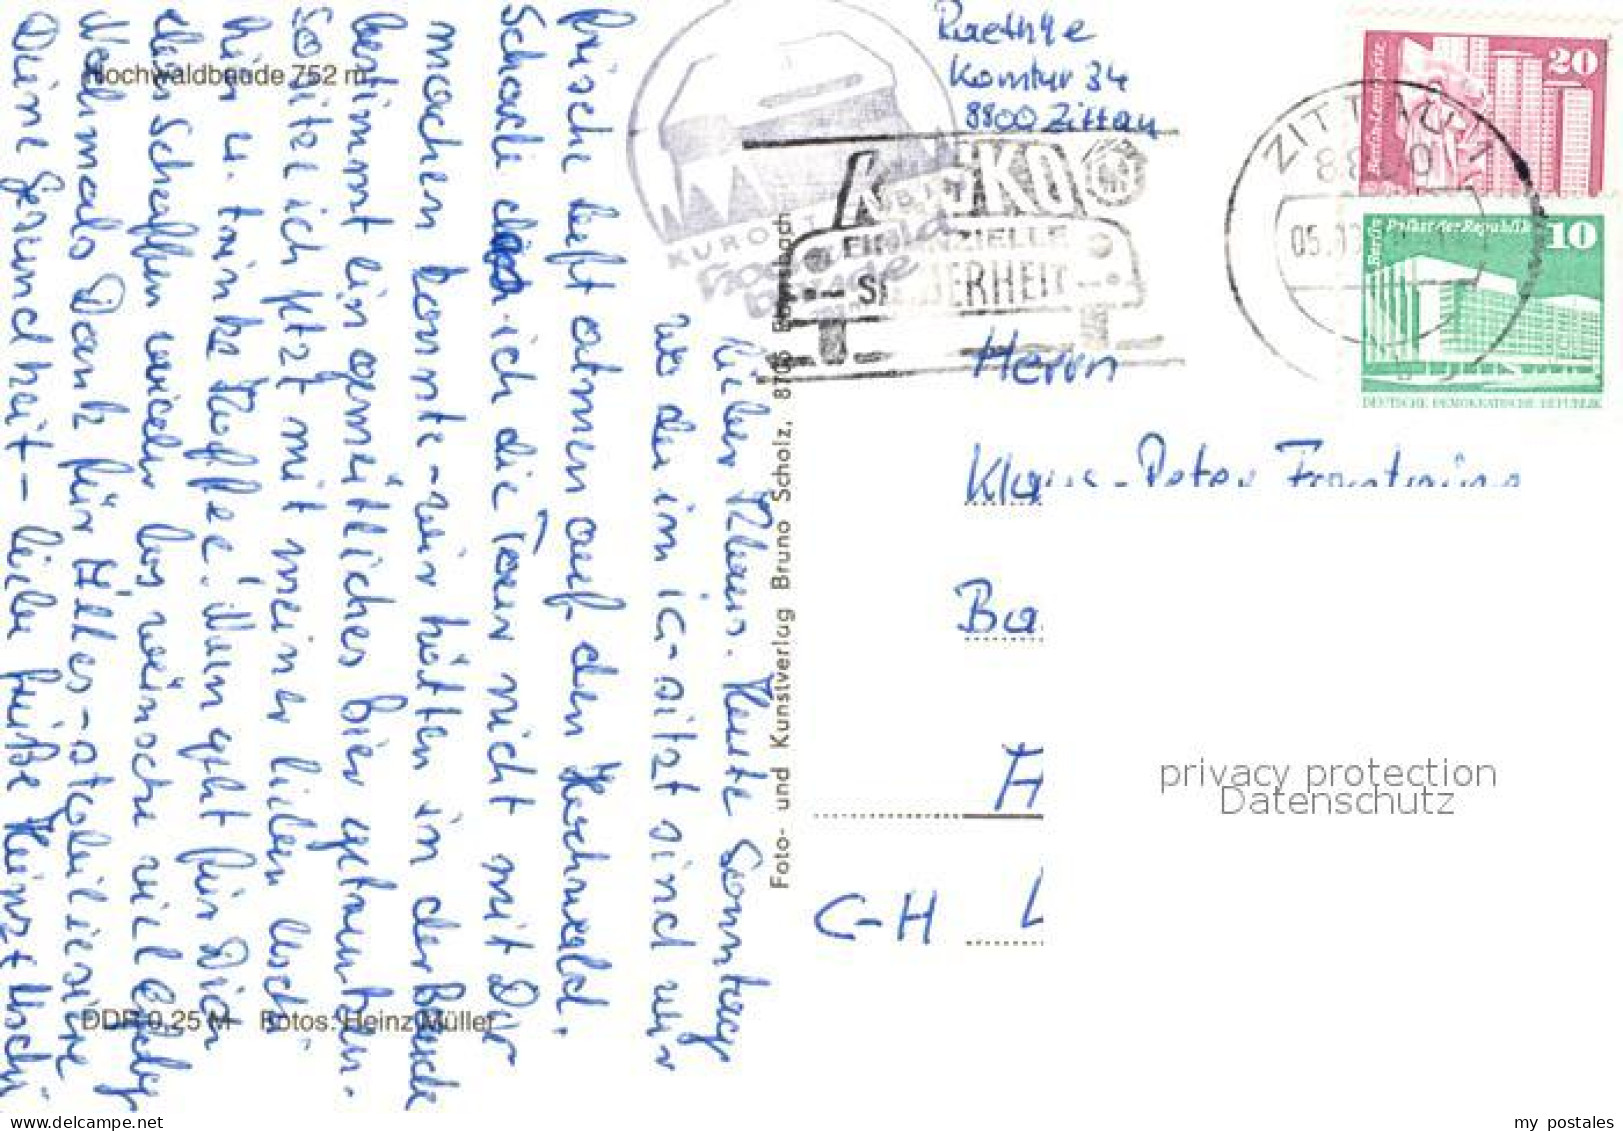 Hochwaldbaude 752 m
Lieber Klaus. Heute Sonntag
wo du im IC-sitzt sind wir
frische Luft atmen auf den Hochwald.
Schade das ich die Tour nicht mit Dir
machen konnte - wir hätten in der Baude
bestimmt ein gemütliches Bier getrunken.
So sitze ich jetzt mit meiner lieben Uschi
hier u. trinke Kaffee! Nun geht für Dich
das Schaffen wieder los wünsche viel Erfolg
Nochmals Dank für Alles - stabilisiere
Deine Gesundheit - liebe Grüße Heinz+Uschi
DDR 0,25 M Fotos: Heinz Müller
Foto- und Kunstverlag Bruno Scholz, 8706
KURORT
Hochwald
baude
Raethke
Komtur 34
8800 Zittau
KASKO
FINANZIELLE
SICHERHEIT
ZITTAU 1
8800
05.
20
Berlin-Leninplatz
10
Berlin Palast der Republik
DEUTSCHE DEMOKRATISCHE REPUBLIK
Herrn
Klaus-Peter
Ba
CH-
privacy protection
Datenschutz
my postales